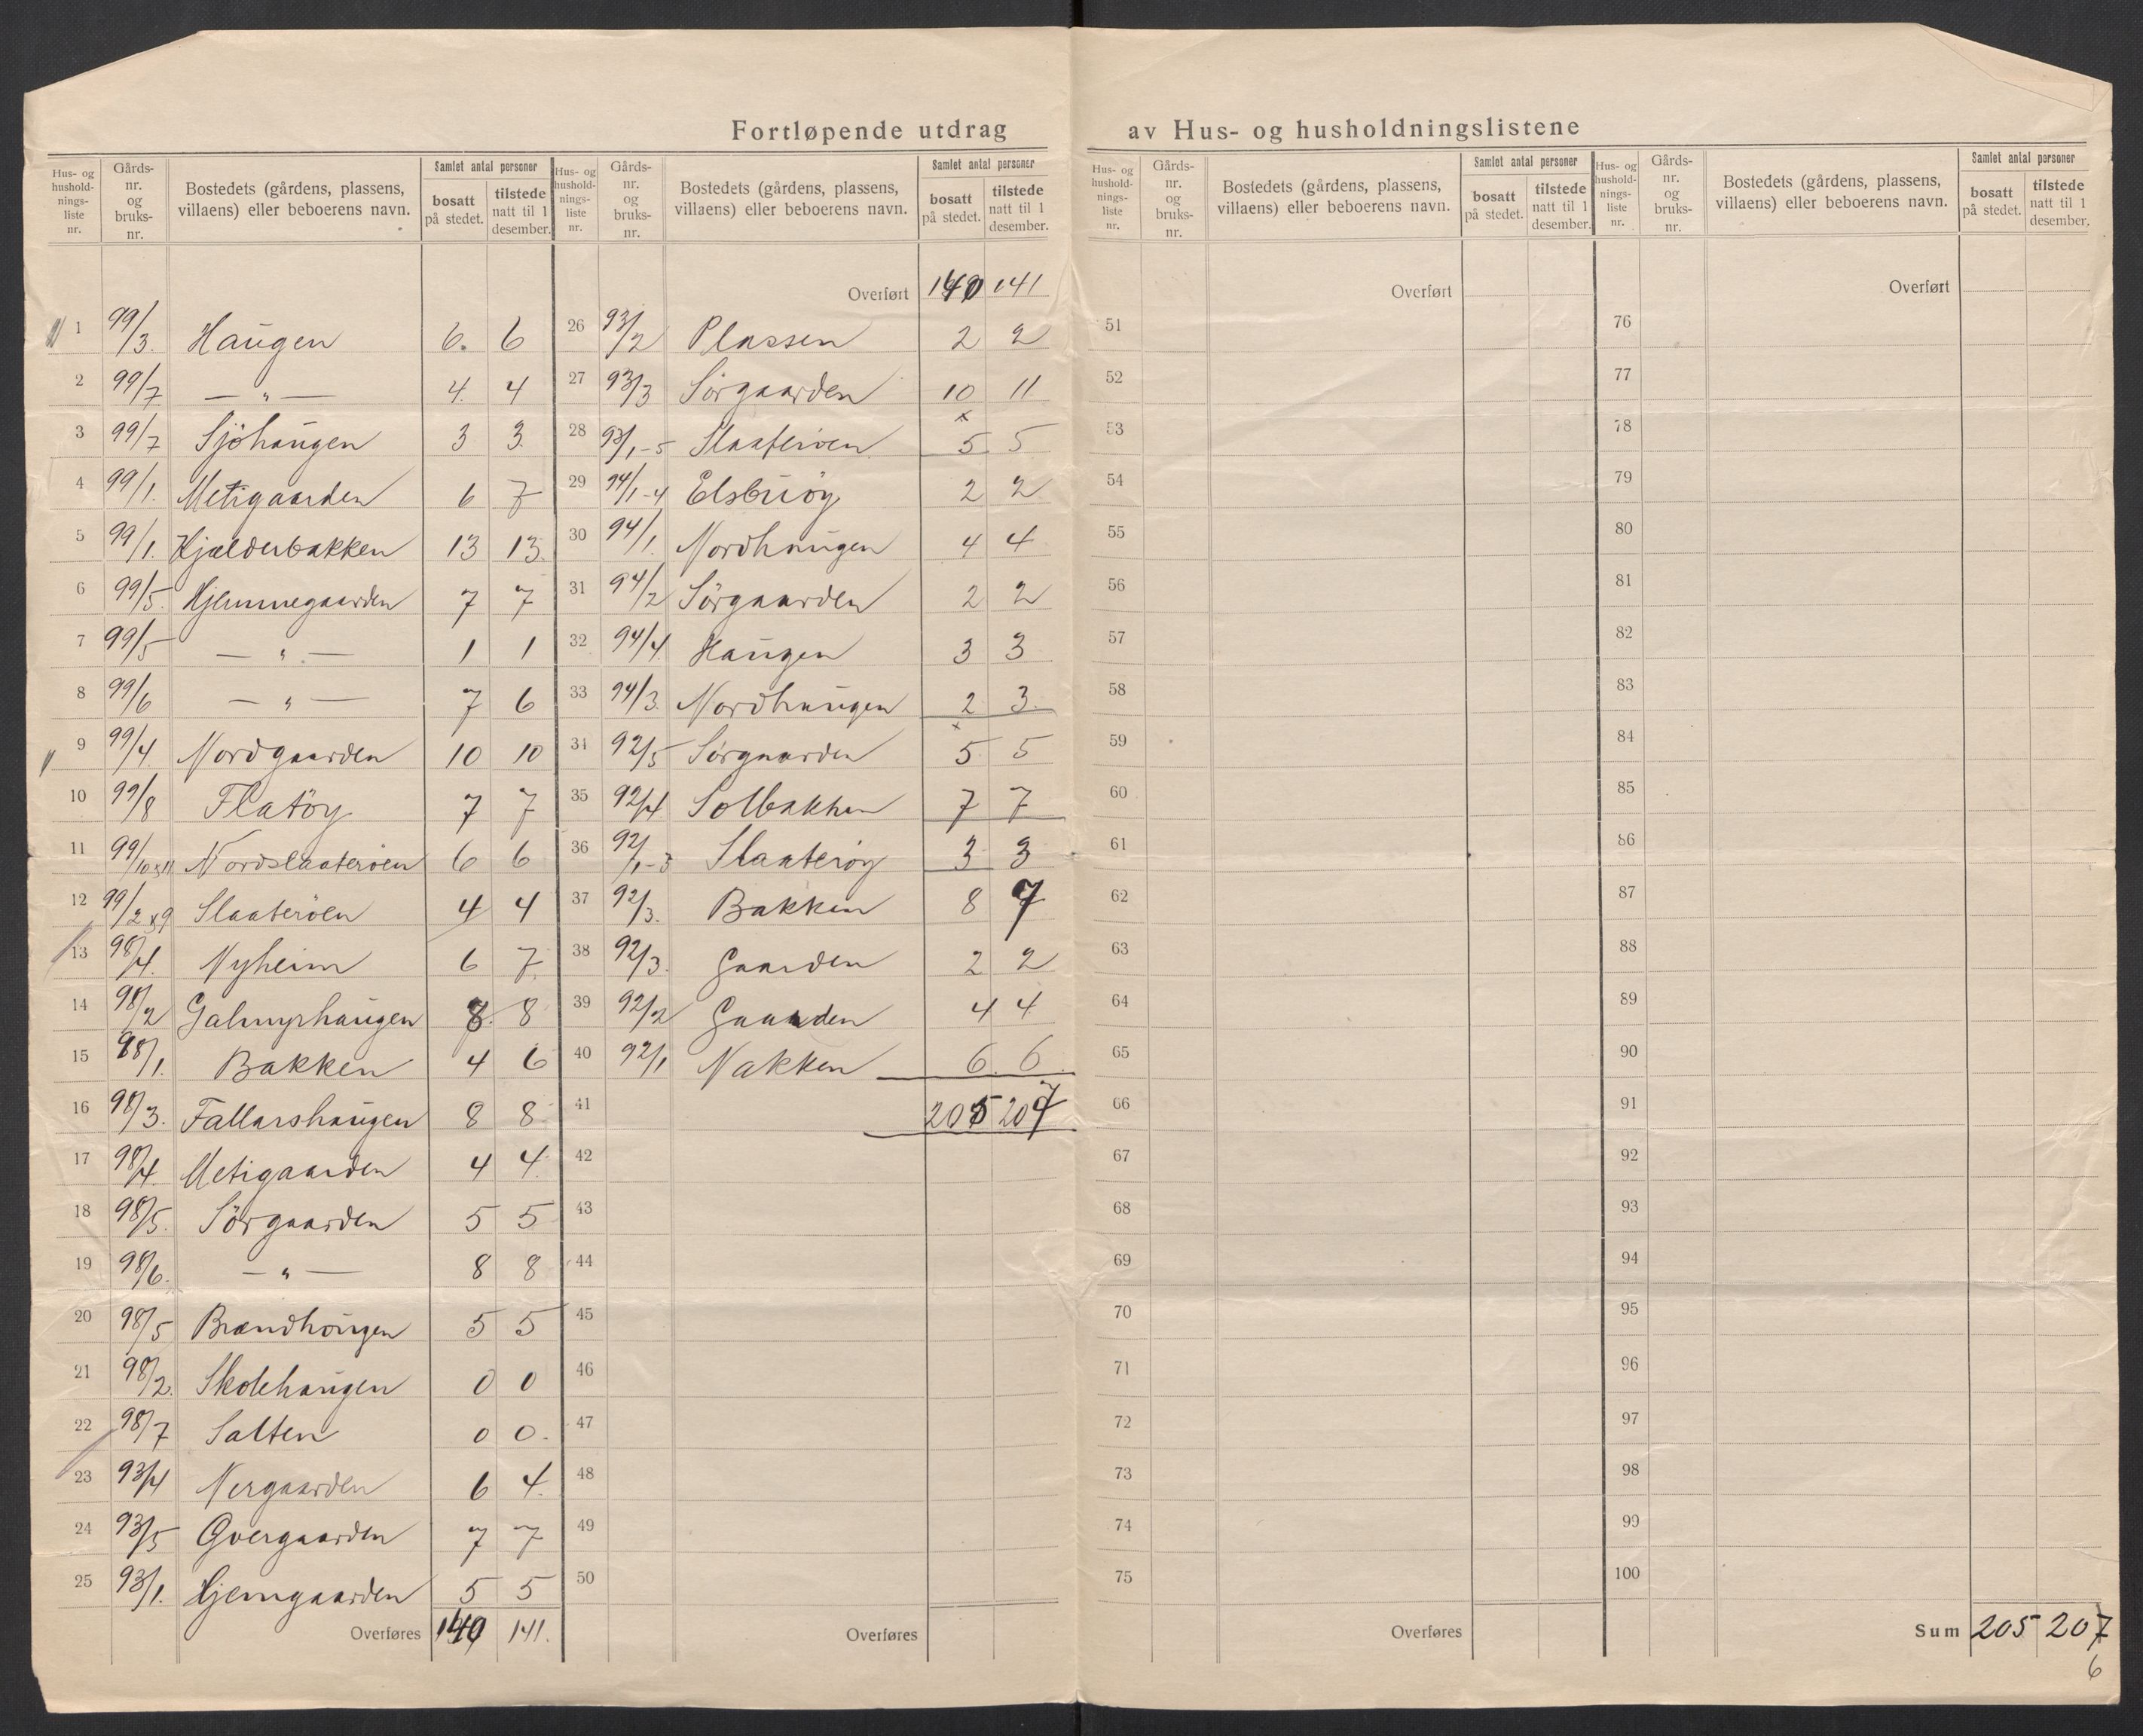 Fortløpende utdrag av Hus- og husholdningslistene
Hus- og hushold-nings-liste nr. | Gårds-nr. og bruks-nr. | Bostedets (gårdens, plassens, villaens) eller beboerens navn. | Samlet antal personer | bosatt på stedet. | tilstede natt til 1 desember.
1 99/3. Haugen 6. 6
2 99/7 — " — 4 4
3 99/7 Sjöhaugen 3 3
4 99/1. Metigaarden 6 7
5 99/1. Hjælderbakken 13 13
6 99/5. Hjemmegaarden 7 7
7 99/5 — " — 1 1
8 99/6 — " — 7 6
9 99/4 Nordgaarden 10 10
10 99/8 Flatöy 7 7
11 99/10&11 Nordslaateröen 6 6
12 99/2&9 Slaateröen 4 4
13 98/4. Nyheim 6 7
14 98/2 Galmyrhaugen 8. 8
15 98/1. Bakken 4 6
16 98/3. Fallarshaugen 8 8
17 98/4. Metigaarden 4 4
18 98/5. Sörgaarden 5 5
19 98/6. — " — 8 8
20 98/5 Brandhaugen 5 5
21 98/2. Skolehaugen 0 0
22 98/7 Salten 0 0.
23 93/4 Nergaarden 6 4
24 93/5 Overgaarden 7 7
25 93/1. Hjemgaarden 5 5
Overføres 140 141.
Hus- og hushold-nings-liste nr. | Gårds-nr. og bruks-nr. | Bostedets (gårdens, plassens, villaens) eller beboerens navn. | Samlet antal personer | bosatt på stedet. | tilstede natt til 1 desember.
Overført 140 141
26 93/2 Plassen 2 2
27 93/3 Sörgaarden 10 11
28 93/1-5 Slaateröen 5 5
29 94/1-4 Elsbuöy 2 2
30 94/1. Nordhaugen 4 4
31 94/2 Sörgaarden 2 2
32 94/4. Haugen 3 3
33 94/3. Nordhaugen 2 3
34 92/5 Sörgaarden 5 5
35 92/4 Solbakken 7 7
36 92/1-3 Slaateröy 3 3
37 92/3. Bakken 8 7
38 92/3. Gaarden 2 2
39 92/2 Gaarden 4 4
40 92/1 Nakken 6. 6
41 205 207
42
43
44
45
46
47
48
49
50
Overføres
Hus- og hushold-nings-liste nr. | Gårds-nr. og bruks-nr. | Bostedets (gårdens, plassens, villaens) eller beboerens navn. | Samlet antal personer | bosatt på stedet. | tilstede natt til 1 desember.
Overført
51
52
53
54
55
56
57
58
59
60
61
62
63
64
65
66
67
68
69
70
71
72
73
74
75
Overføres
Hus- og hushold-nings-liste nr. | Gårds-nr. og bruks-nr. | Bostedets (gårdens, plassens, villaens) eller beboerens navn. | Samlet antal personer | bosatt på stedet. | tilstede natt til 1 desember.
Overført
76
77
78
79
80
81
82
83
84
85
86
87
88
89
90
91
92
93
94
95
96
97
98
99
100
Sum 205 207
6